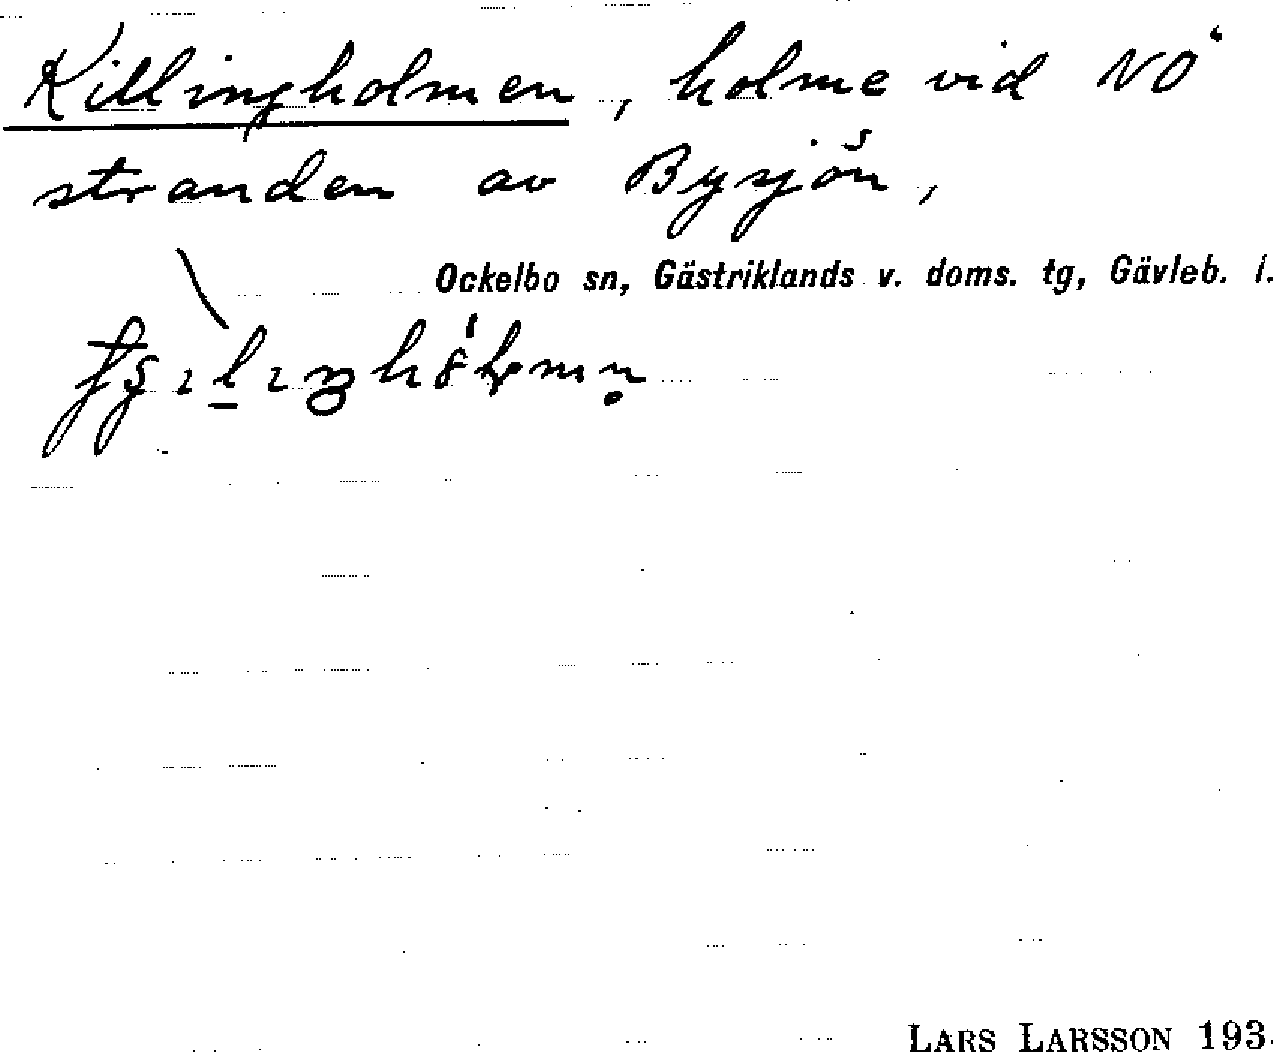 Killingholmen, holme vid NÖ
stranden av Bysjön,
Ockelbo sn, Gästriklands v. doms. tg, Gävleb. l.
LARS LARSSON 193